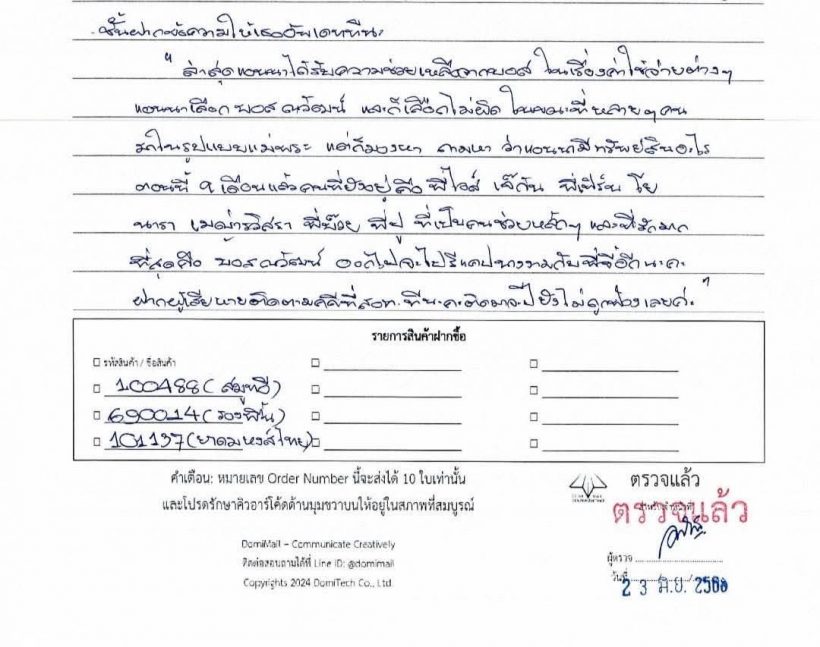 ชั้นฝากข้อความให้เธออัพเดททีนะ
" ล่าสุดแอนนาได้รับความช่วยเหลือจากบอส ในเรื่องค่าใช้จ่ายต่างๆ
แอนนาเลือก บอส ณวัฒน์ และก็เลือกไม่ผิด ในขณะที่หลายๆคน
มาในรูปแบบแม่พระ แต่ก็มองหา ถามหา ว่าแอนนามีทรัพย์สินอะไร
ตอนนี้ 9 เดือนแล้วคนที่ยังอยู่คือ พี่ไอซ์ เจ๊กัน พี่เฟิร์น โย
นารา เมญ่ารวิสรา พี่บ๊วย พี่ปู ที่เป็นคนช่วยหลักๆ และที่รักมาก
ที่สุดคือ บอสณวัฒน์ ออกไปจะไปรีแคปนางงามกับพี่จี้อีกนะคะ
ฝากผู้เสียหายติดตามคดีที่สอท. ทีนะคะติดมาจะปียังไม่ถูกฟ้องเลยค่ะ "
รายการสินค้าฝากซื้อ
รหัสสินค้า / ชื่อสินค้า
100488 (สมูทอี)
690014 (รองพื้น)
101137 (ยาดมหงส์ไทย)
คำเตือน: หมายเลข Order Number นี้จะส่งได้ 10 ใบเท่านั้น
และโปรดรักษาคิวอาร์โค้ดด้านมุมขวาบนให้อยู่ในสภาพที่สมบูรณ์
DomiMail – Communicate Creatively
ติดต่อสอบถามได้ที่ Line ID: @domimail
Copyrights 2024 DomiTech Co., Ltd.
ตรวจแล้ว
ตรวจแล้ว
ผู้ตรวจ
วันที่
23 มิ.ย. 2568